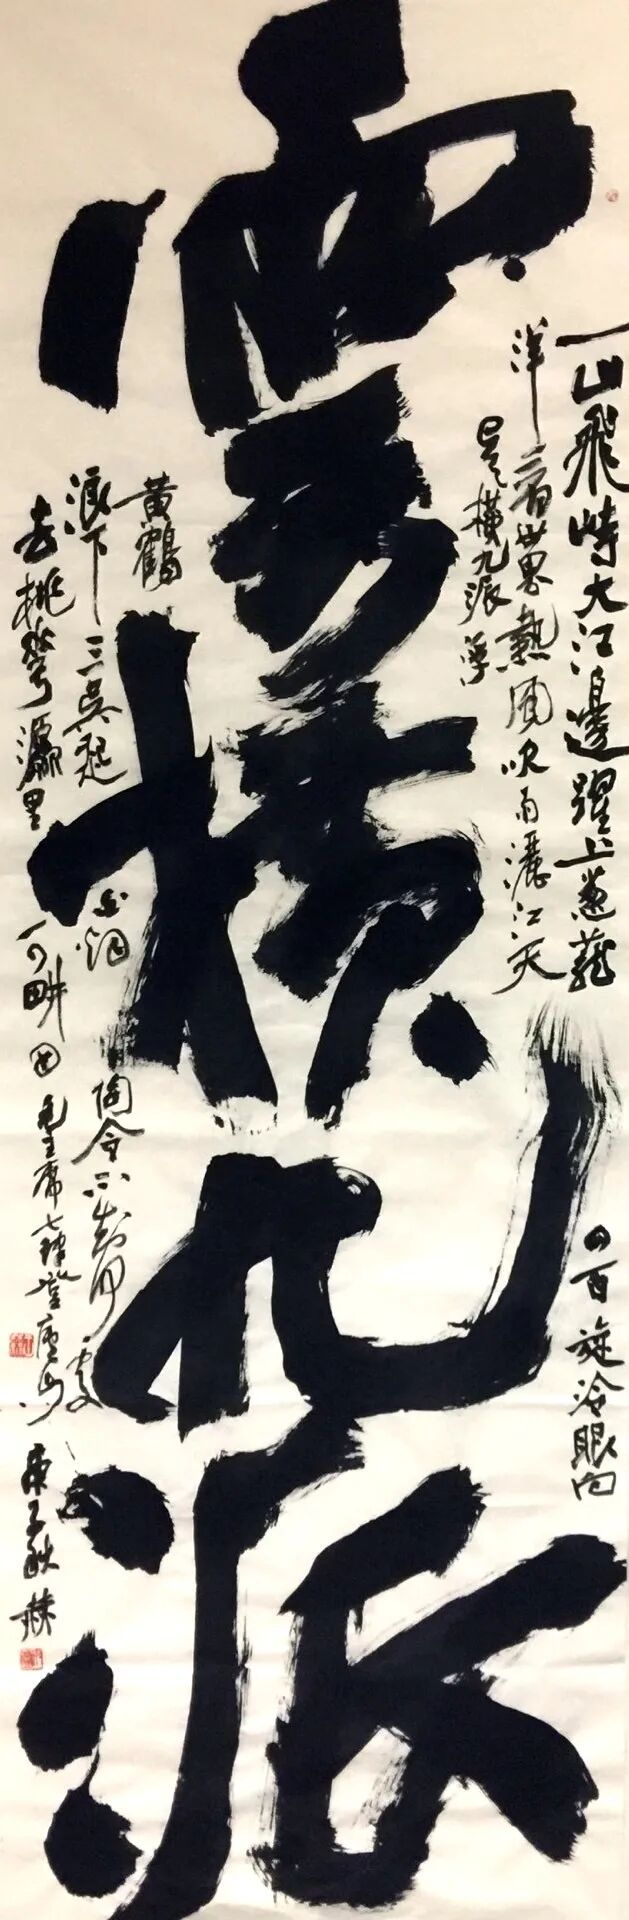 雲橫九派
一山飛峙大江邊躍上葱蘢
四百旋冷眼向
洋看世界熱風吹雨灑江天
雲橫九派浮
黃鶴
浪下三吳起
白烟
陶令不知何處
去桃華源里可耕田毛主席七律登廬山庚子秋